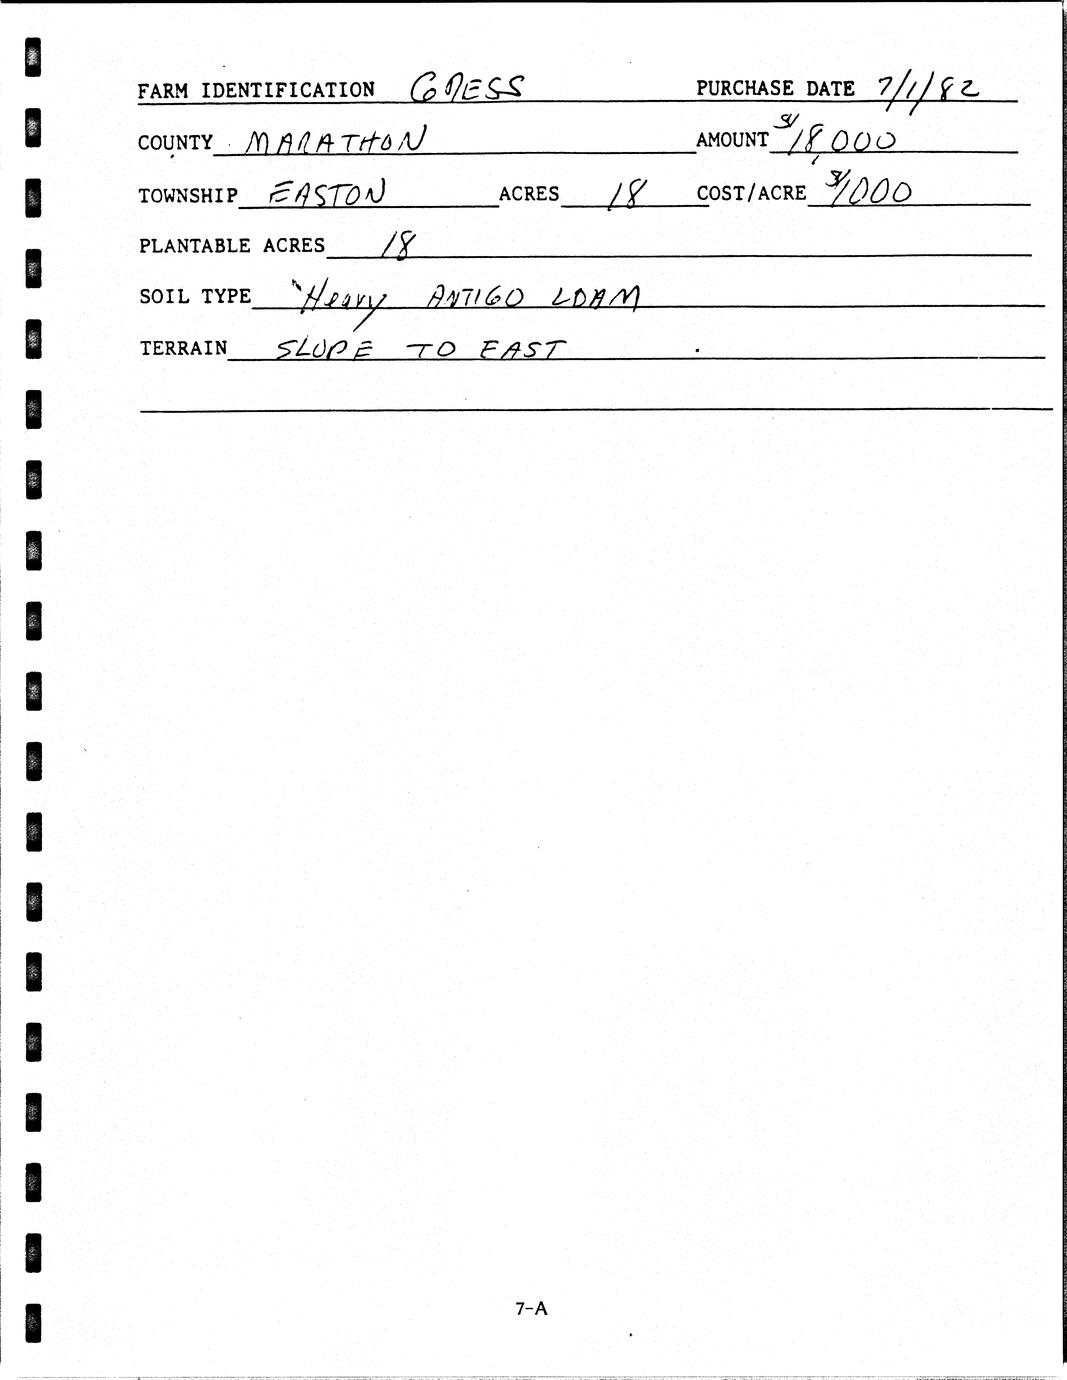 FARM IDENTIFICATION GRESS PURCHASE DATE 7/1/82
COUNTY MARATHON AMOUNT $18,000
TOWNSHIP EASTON ACRES 18 COST/ACRE $1000
PLANTABLE ACRES 18
SOIL TYPE Heavy ANTIGO LOAM
TERRAIN SLOPE TO EAST
7-A